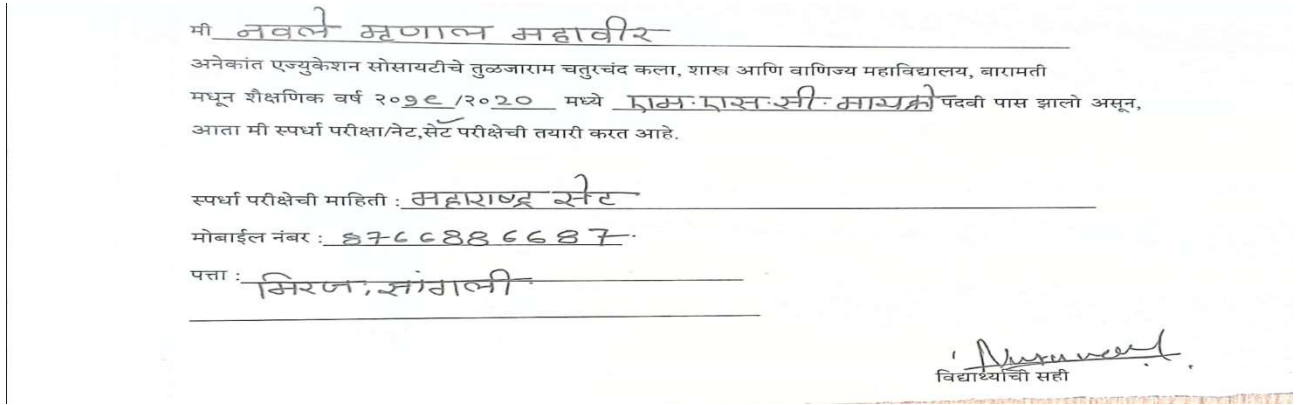 मी नवले मृणाल महावीर
अनेकांत एज्युकेशन सोसायटीचे तुळजाराम चतुरचंद कला, शास्त्र आणि वाणिज्य महाविद्यालय, बारामती
मधून शैक्षणिक वर्ष २०१९ /२०२० मध्ये एम.एस.सी. मायक्रो पदवी पास झालो असून,
आता मी स्पर्धा परीक्षा/नेट,सेट परीक्षेची तयारी करत आहे.
स्पर्धा परीक्षेची माहिती : महाराष्ट्र सेट
मोबाईल नंबर : 8766886687.
पत्ता : मिरज, सांगली
विद्यार्थ्याची सही